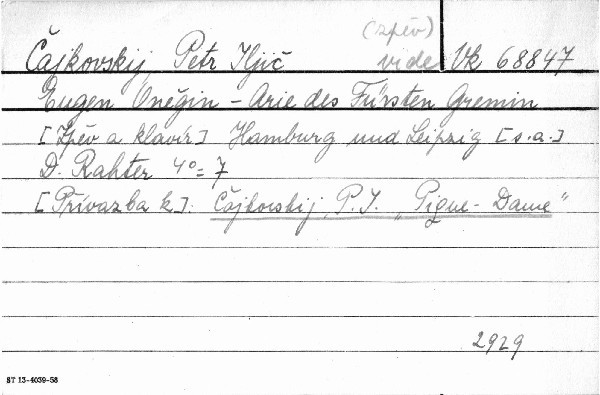 (zpěv)
Čajkovskij Petr Iljič vide Vk 68847
Eugen Oněgin - Arie des Fürsten Gremin
[Zpěv a klavír] Hamburg und Leipzig [s.a.]
D. Rahter 4° = 7
[Přívazba k]: Čajkovskij, P. I. „Pique-Dame"
2929
ST 13-4039-58